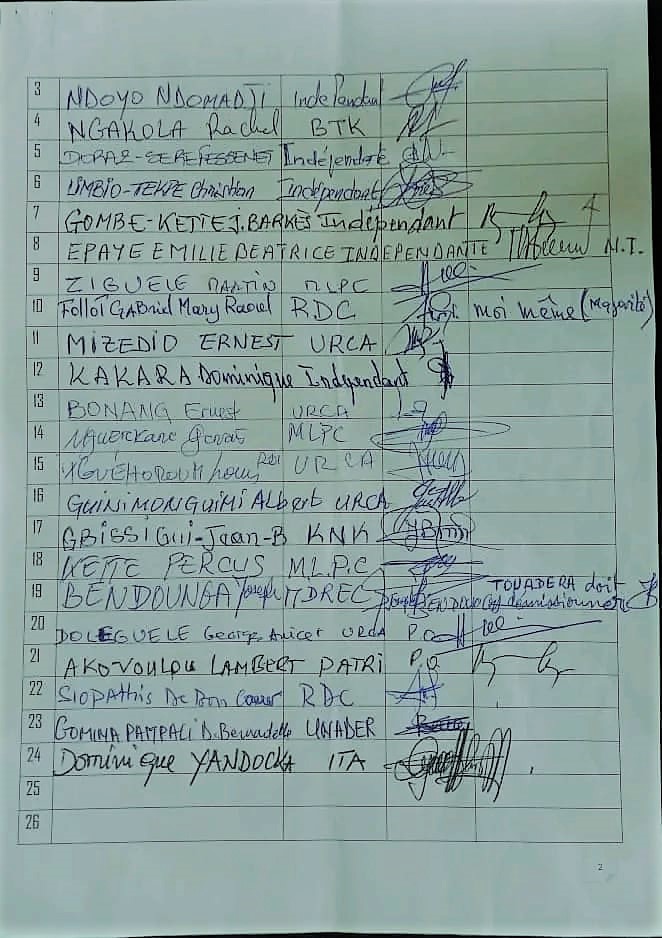 3 NDOYO NDOMADJI Indépendant
4 NGAKOLA Rachel BTK
5 Indépendte
6 LIMBIO-TEKPE Christian Indépendant
7 GOMBE-KETTE J. BARKES Indépendant
8 EPAYE EMILIE BEATRICE INDEPENDANTE N.I.
9 ZIGUELE MARTIN MLPC
10 FolloT GABriel Mary Raoul RDC moi même (Majorité)
11 MIZEDIO ERNEST URCA
12 KAKARA Dominique Indépendant
13 BONANG Ernest URCA
14 MLPC
15 URCA
16 GUINIMONGUIMI Albert URCA
17 GBISSI Gui-Jean-B KNK
18 KETTE PERCUS M.L.P.C
19 BENDOUNGA Joseph MDREC TOUADERA doit démissionner
20 DOLEGUELE George Anicet URCA P.O
21 AKOVOULOU LAMBERT PATRI P.O
22 RDC
23 GOMINA PAMPALI D. Bernadette UNADER
24 Dominique YANDOCKA ITA
25
26
2